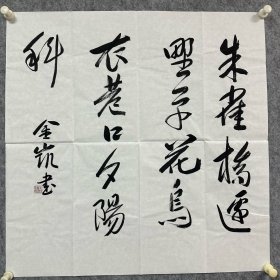 朱雀橋邊
野草花烏
衣巷口夕陽
斜
金凱書